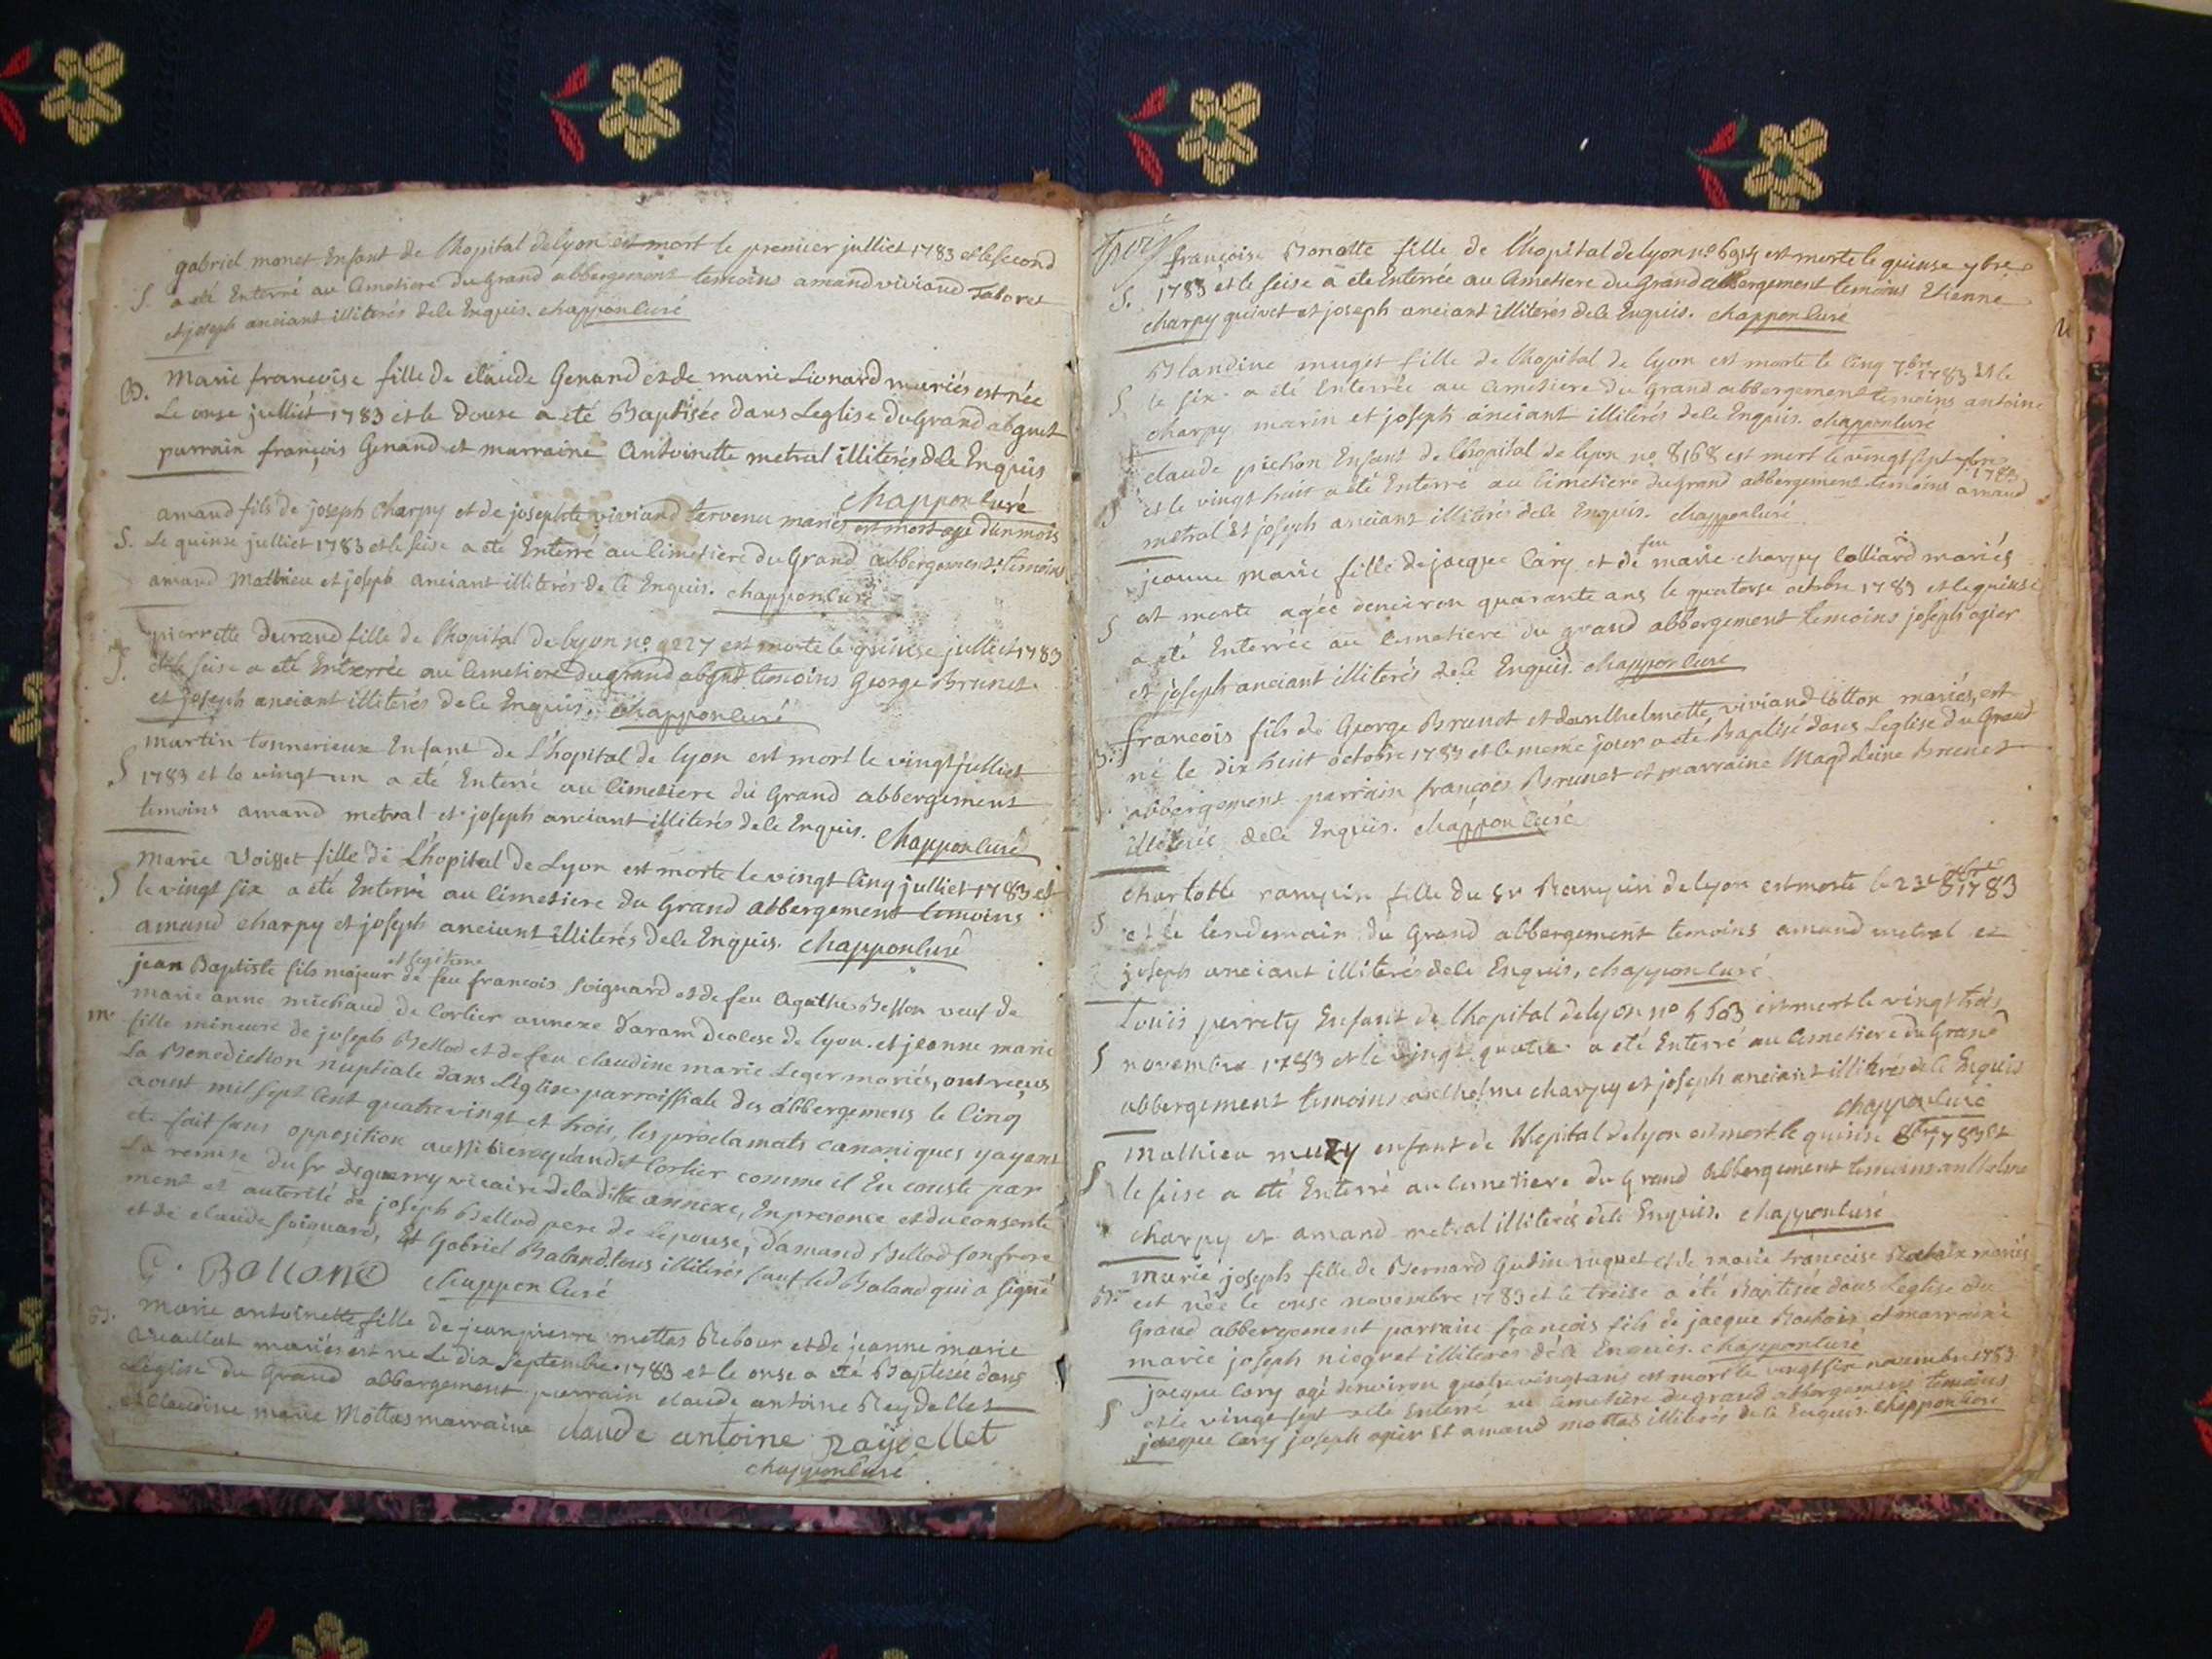 gabriel monet Enfant de lhopital delyon est mort le premier julliet 1783 et le second
S. a eté Enterré au Cimetiere du Grand abbergement temoins amand viviand Taboret
et joseph anciant illiterés dele Enquis. chappon Curé
B. Marie francoise fille de claude Genand et de marie Lionard mariés est née
Le onse julliet 1783 et le douse a eté Baptisée dans Leglise du Grand abgmt
parrain françois Genand et marraine Antoinette metral illitérés dele Enquis
chappon Curé
amand fils de joseph Charpy et de josephte viviand tervenu mariés est mort agé d'un mois
S. Le quinse julliet 1783 et le seise a eté Enterré au Cimetiere du Grand abbergement temoins
amand Mathieu et joseph anciant illiterés de le Enquis. chappon Curé
pierrette durand fille de lhopital de lyon no. 9227 est morte le quinse julliet 1783
S. et le seise a eté Enterrée au Cimetiere du grand abgmt temoins George Brunet
et joseph anciant illiterés dele Enquis. chappon Curé
martin tonnerieux Enfant de L'hopital de lyon est mort le vingt julliet
S 1783 et le vingt un a eté Enterré au Cimetiere du Grand abbergement
temoins amand metral et joseph anciant illiterés dele Enquis. Chappon Curé
Marie Voisset fille de L'hopital de Lyon est morte le vingt Cinq julliet 1783 et
S le vingt six a eté Enterré au Cimetiere du Grand abbergement temoins
amand charpy et joseph anciant illiterés dele Enquis. Chappon Curé
et legitime
jean Baptiste fils majeur de feu francois soignard et de feu Agathe Besson veuf de
marie anne michaud de Corlier annexe d'aram diocese de lyon. et jeanne marie
m. fille mineure de joseph Bellod et de feu claudine marie Leger mariés, ont reçus
La Benediction nuptiale dans L'eglise parroissiale des abbergemens le Cinq
aoust mil sept Cent quatre vingt et trois, les proclamats canoniques yayant
eté fait sans opposition aussi bien qu'audit Corlier comme il En conste par
La remise du sr dequerry vicaire deladitte annexe, En presence et du consente
ment et autorité de joseph Bellod pere de Lepouse, d'amand Bellod son frere
et de claude soignard, Et Gabriel Baland, tous illiterés sauf led Baland qui a signé
G. Balland chappon Curé
B. Marie antoinette fille de jean pierre mottas Rebour et de jeanne marie
mariés est né Le dix Septembre 1783 et le onse a eté Baptisée dans
Léglise du Grand abbergement parrain claude antoine Reydellet
et Claudine marie Mottas marraine claude antoine Raydellet
chappon Curé
françoise Bonatte fille de l'hopital de lyon no 6914 est morte le quinse 7bre
S. 1783 et le seise a eté Enterrée au Cimetiere du Grand abbergement temoins Etienne
charpy quivet et joseph anciant illiterés dele Enquis. chappon Curé
Blandine muget fille de lhopital de lyon est morte le Cinq 7bre 1783 Et le
S le six a eté Enterrée au Cimetiere du Grand abbergement temoins antoine
charpy marin et joseph anciant illiterés dele Enquis. chappon Curé
claude pichon Enfant de lhopital de lyon no 8168 est mort le vingt sept 7bre 1783
S et le vingt huit a eté Enterré au Cimetiere du grand abbergement temoins amand
metral Et joseph anciant illiterés dele Enquis. chappon Curé
feu
jeanne Marie fille de jacque Cary et de marie charpy Colliard mariés
S est morte agée denviron quarante ans le quatorse octobre 1783 et le quinse
a eté Enterrée au Cimetiere du grand abbergement temoins joseph ogier
et joseph anciant illiterés dele Enquis. chappon Curé
B. francois fils de George Brunet et danthelmette viviand Cotton mariés, est
né le dix huit octobre 1783 et le meme jour a eté Baptisé dans Leglise du Grand
abbergement parrain françois Brunet et marraine Magdeleine Brunet
illiterés dele Enquis. chappon Curé
Charlotte rampin fille du Sr Rampin de lyon est morte le 23e 8bre 1783
S et le lendemain du Grand abbergement temoins amand metral et
joseph anciant illiterés dele Enquis, chappon Curé
Louis perrety Enfant de lhopital delyon no 6603 est mort le vingt trois
S novembre 1783 et le vingt quatre a eté Enterré au Cimetiere du Grand
abbergement temoins anthelme charpy et joseph anciant illiterés dele Enquis
chappon Curé
Mathieu muzy enfant de lhopital delyon est mort le quinse 8bre 1783 et
S le seise a eté Enterré au Cimetiere du Grand abbergement temoins anthelme
charpy et amand metral illiterés dele Enquis. chappon Curé
Marie joseph fille de Bernard Gudin ruguet et de marie francoise mariés
B. est née le onse novembre 1783 et le treise a été Baptisée dans Leglise du
Grand abbergement parrain françois fils de jacque et marraine
marie joseph niogret illiteres dele Enquis. chappon Curé
jacque Cary agé denviron quatre vingt ans est mort le vingt six novembre 1783
S et le vingt sept a eté Enterré au Cimetiere du grand abbergement temoins
jacque Cary joseph ogier Et amand mottas illiterés dele Enquis. chappon Curé